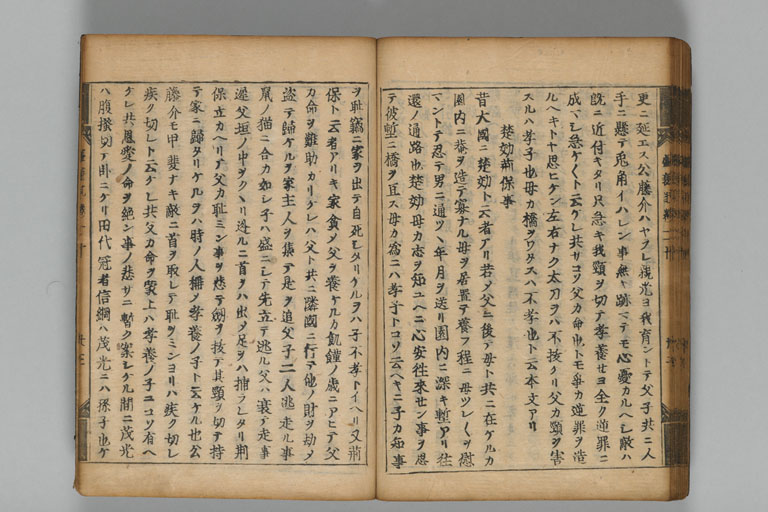 更ニ延エス公藤介ハヤヲレ親光ヨ我育ントテ父子共ニ人
手ニ懸テ兎角イハレン事無ヤ跡マテモ心憂カルヘシ敵ハ
既ニ近付キタリ只急キ我頸ヲ切テ孝養セヨ全ク逆罪ニ
成マシ急ケ〱ト云ケレ共サコソ父カ命也トモ争カ逆罪ヲ造
ルヘキトヤ思ヒケン左右ナク太刀ヲハ不抜ケリ父カ頸ヲ害
スルハ孝子也母カ橋ヲワタスハ不孝也ト云本文アリ
楚効荊保事
昔大國ニ楚効ト云者アリ若メ父ニ後テ母ト共ニ在ケルカ
園内ニ菴ヲ造テ寡ナル母ヲ居置テ養フ程ニ母ツレ〱ヲ慰
マントテ忍テ男ニ通ツヽ年月ヲ送リ園内ニ深キ塹アリ往
還ノ通路也楚効母カ志ヲ知ユヘニ心安往來セン事ヲ思
テ彼塹ニ橋ヲ亘ス母カ為ニハ孝子トコソ云ヘキニ子カ知事
ヲ耻竊ニ家ヲ出テ自死シタリケルヲハ子不孝トイヘリ又荊
保ト云者アリキ家貧メ父ヲ養ケルカ飢饉ノ歳ニアヒテ父
カ命ヲ難助カリケレハ父ト共ニ隣國ニ行テ他ノ財ヲ劫メ
盗テ歸ケルヲ家主人ヲ集テ是ヲ追父子二人逃走ル事
鼠ノ猫ニ合カ如シ子ハ盛ニシテ先立テ逃ル父ハ衰テ走事
遅父垣ノ中ヲクヽリ逃ルニ首ヲハ出メ足ヲハ捕ラレタリ荊
保立カヘリテ父カ耻ミン事ヲ悲テ劔ヲ抜テ其頸ヲ切テ持
テ家ニ歸タリケルヲハ時ノ人操ノ孝養ノ子ト云ケル也公
藤介モ甲斐ナキ敵ニ首ヲ取レテ耻ヲミンヨリハ疾ク切レ
疾ク切レト云ケレ共父カ命ヲ蒙上ハ孝養ノ子ニコソ有ヘ
ケレ共恩愛ノ命ヲ絶ン事ノ悲サニ暫ク案シケル間ニ茂光
ハ腹掻切テ臥ニケリ田代冠者信綱ハ茂光ニハ孫子也ケ